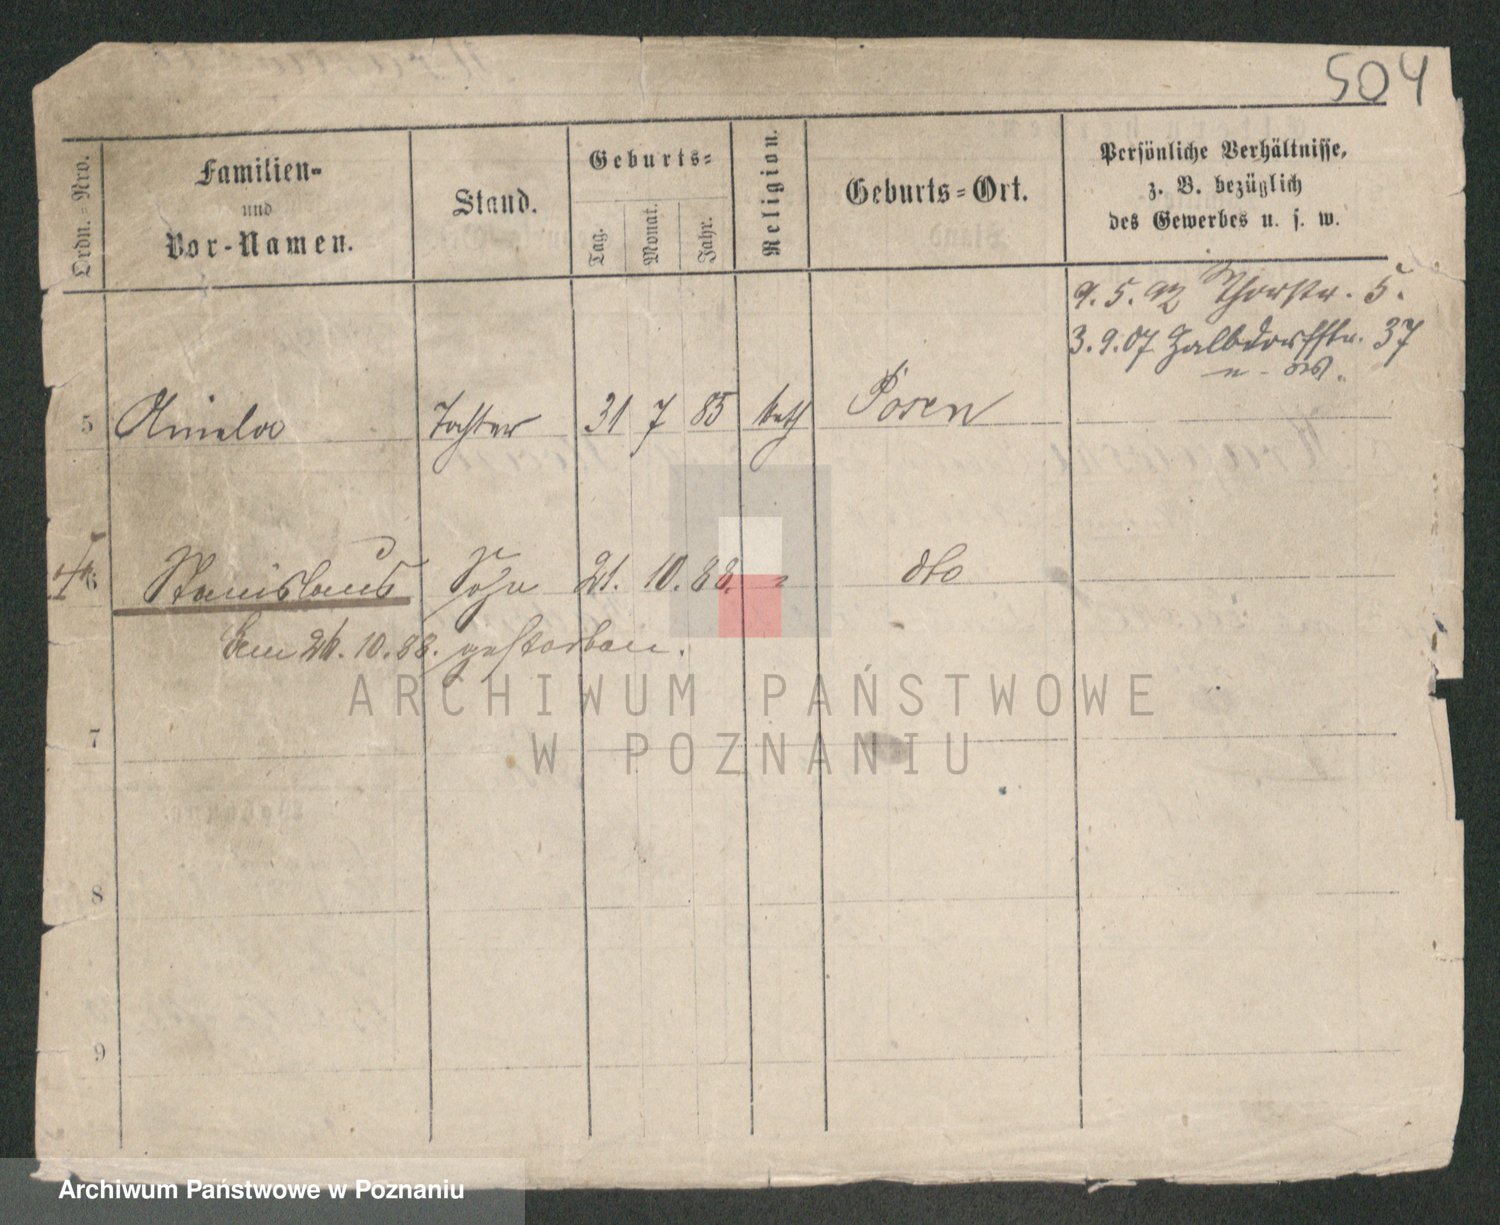 504
Ordn.-Nro.
Familien-
und
Vor-Namen.
Stand.
Geburts-
Tag.
Monat.
Jahr.
Religion.
Geburts-Ort.
Persönliche Verhältnisse,
z. B. bezüglich
des Gewerbes u. s. w.
9. 5. 92 Thorstr. 5.
3. 9. 07 Halbdorfstr. 37
5 Aniela Tochter 31 7 85 kath Posen
6 Stanislaus Sohn 21. 10. 88. " dto
10. 88. gestorben.
7
8
9
ARCHIWUM PAŃSTWOWE
W POZNANIU
Archiwum Państwowe w Poznaniu